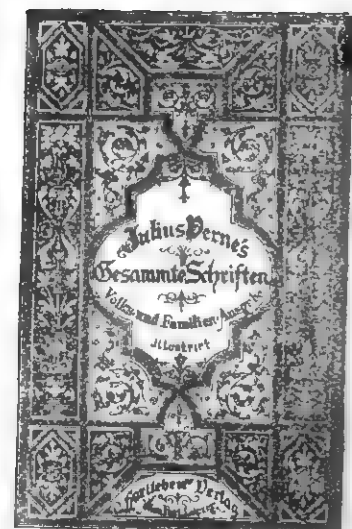 Julius Verne's
Gesammte Schriften
Volks- und Familien-Ausgabe
Illustrirt
Hartleben's Verlag